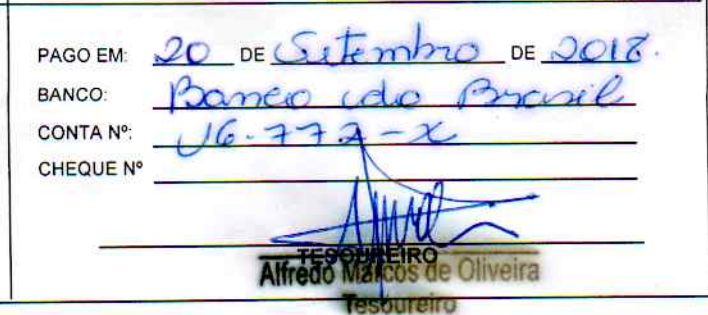 PAGO EM: 20 DE Setembro DE 2018.
BANCO: Banco do Brasil
CONTA Nº: 16.772-X
CHEQUE Nº
TESOUREIRO
Alfredo Marcos de Oliveira
Tesoureiro